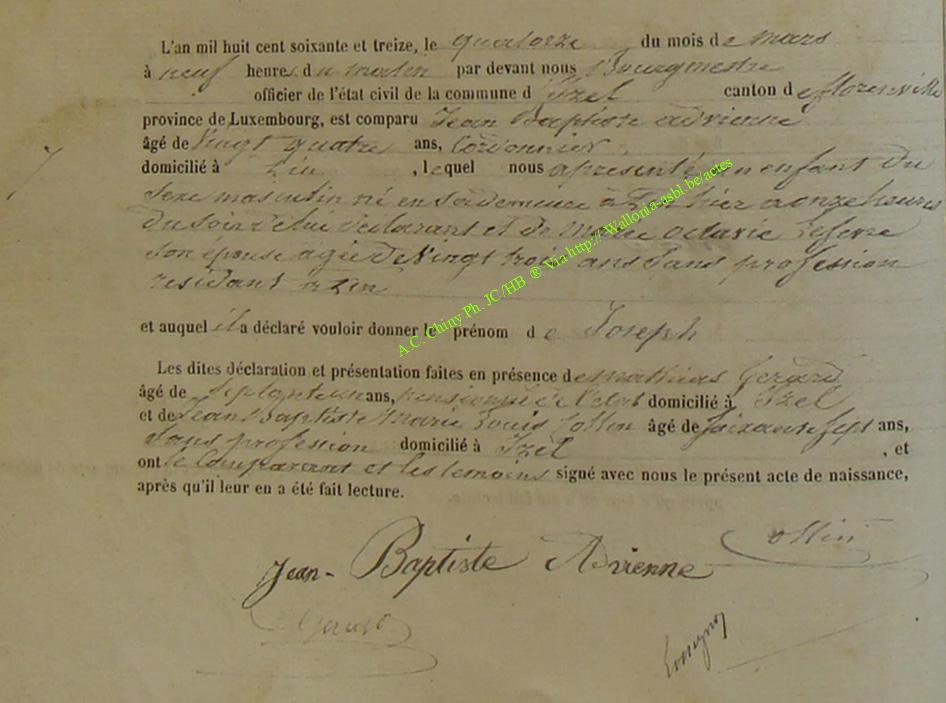 L'an mil huit cent soixante et treize, le quatorze du mois de mars
à neuf heures du matin par devant nous Bourgmestre
officier de l'état civil de la commune d'Izel canton de florenville
province de Luxembourg, est comparu Jean Baptiste adrienne
âgé de Vingt quatre ans, Cordonnier,
domicilié à , lequel nous a présenté un enfant du
Sexe masculin né en sa demeure à hier a onze heures
du soir de lui déclarant et de octavie Lefevre
Son épouse agée de Vingt trois ans Sans profession
résidant à
et auquel il a déclaré vouloir donner le prénom de Joseph
Les dites déclaration et présentation faites en présence de mathias Gerard
âgé de Septante un ans, pensionné de l'état domicilié à Izel
et de Jean Baptiste Marie Louis Collin âgé de Soixante Sept ans,
Sans profession domicilié à Izel , et
ont le Comparant et les temoins signé avec nous le présent acte de naissance,
après qu'il leur en a été fait lecture.
ollin
Jean-Baptiste Adrienne
Gerard
A.C. Chiny Ph. JC/HB ® Via http://Wallonia-asbl.be/actes